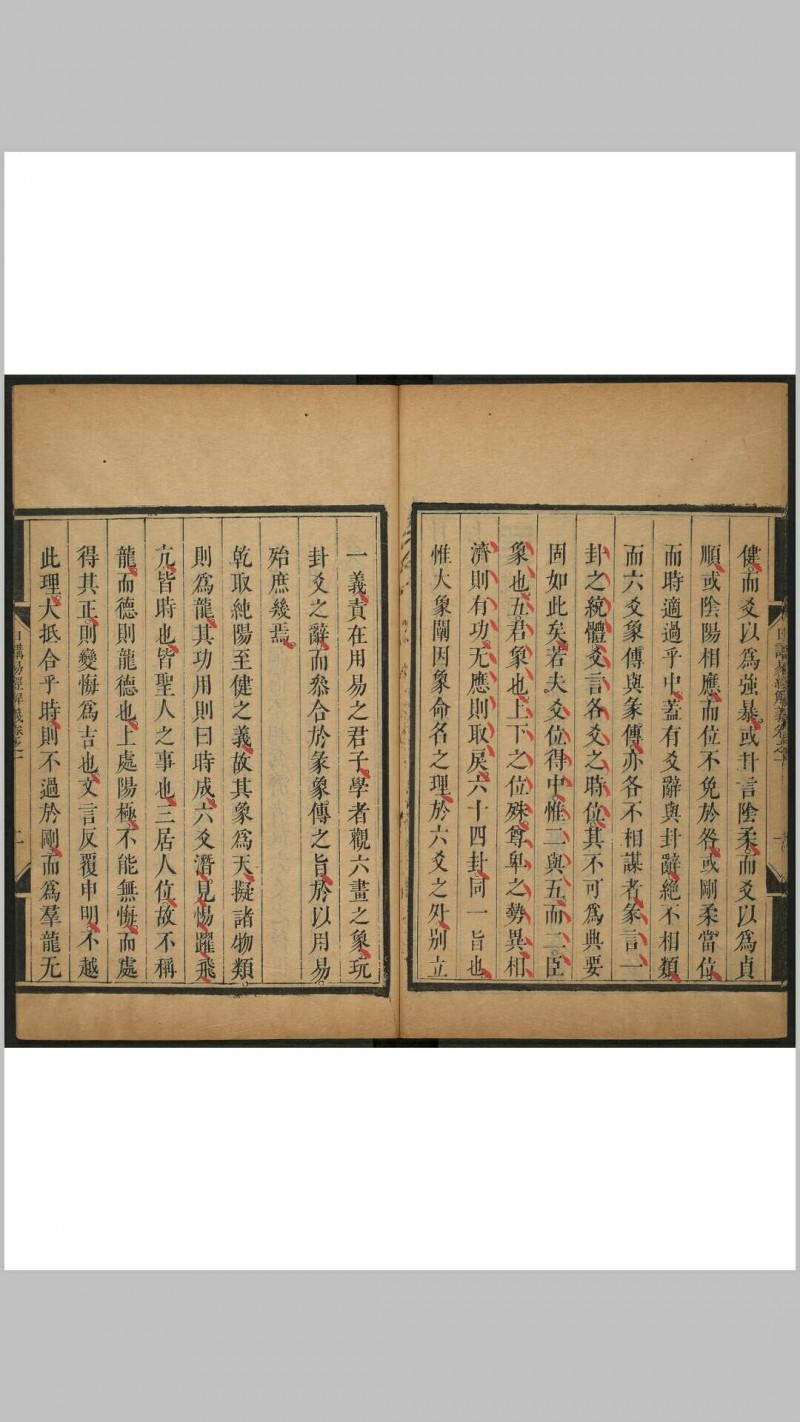 健而爻以為強暴或卦言陰柔而爻以為貞
順或陰陽相應而位不免於咎或剛柔當位
而時適過乎中蓋有爻辭與卦辭絶不相類
而六爻象傳與彖傳亦各不相謀者彖言一
卦之統體爻言各爻之時位其不可為典要
固如此矣若夫爻位得中惟二與五而二臣
象也五君象也上下之位殊尊卑之勢異相
濟則有功无應則取戾六十四卦同一旨也
惟大象闡因象命名之理於六爻之外别立
一義責在用易之君子學者觀六畫之象玩
卦爻之辭而叅合於彖象傳之旨於以用易
殆庶幾焉
乾取純陽至健之義故其象為天擬諸物類
則為龍其功用則曰時成六爻潛見惕躍飛
亢皆時也皆聖人之事也三居人位故不稱
龍而德則龍德也上處陽極不能無悔而處
得其正則變悔為吉也文言反覆申明不越
此理大抵合乎時則不過於剛而為羣龍无
日講易經解義卷之一
二